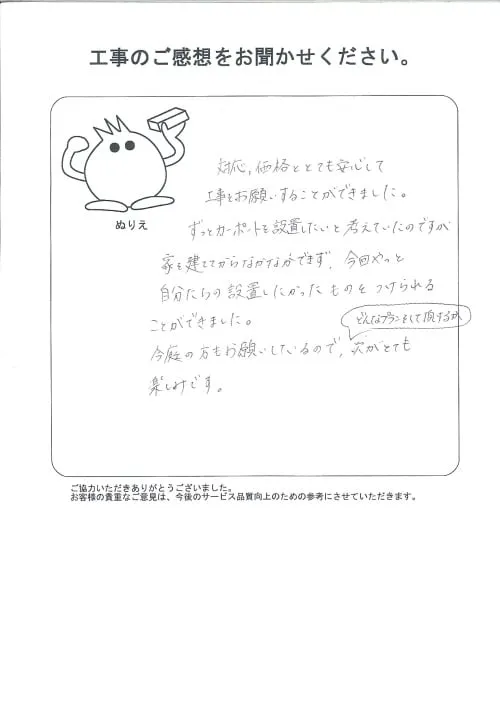 工事のご感想をお聞かせください。
ぬりえ
対応、価格ととても安心して
工事をお願いすることができました。
ずっとカーポートを設置したいと考えていたのですが
家を建ててからなかなかできず、今回やっと
自分たちの設置したかったものをつけられる
ことができました。
どんなプランをして頂けるか
今庭の方もお願いしているので、次がとても
楽しみです。
ご協力いただきありがとうございました。
お客様の貴重なご意見は、今後のサービス品質向上のための参考にさせていただきます。